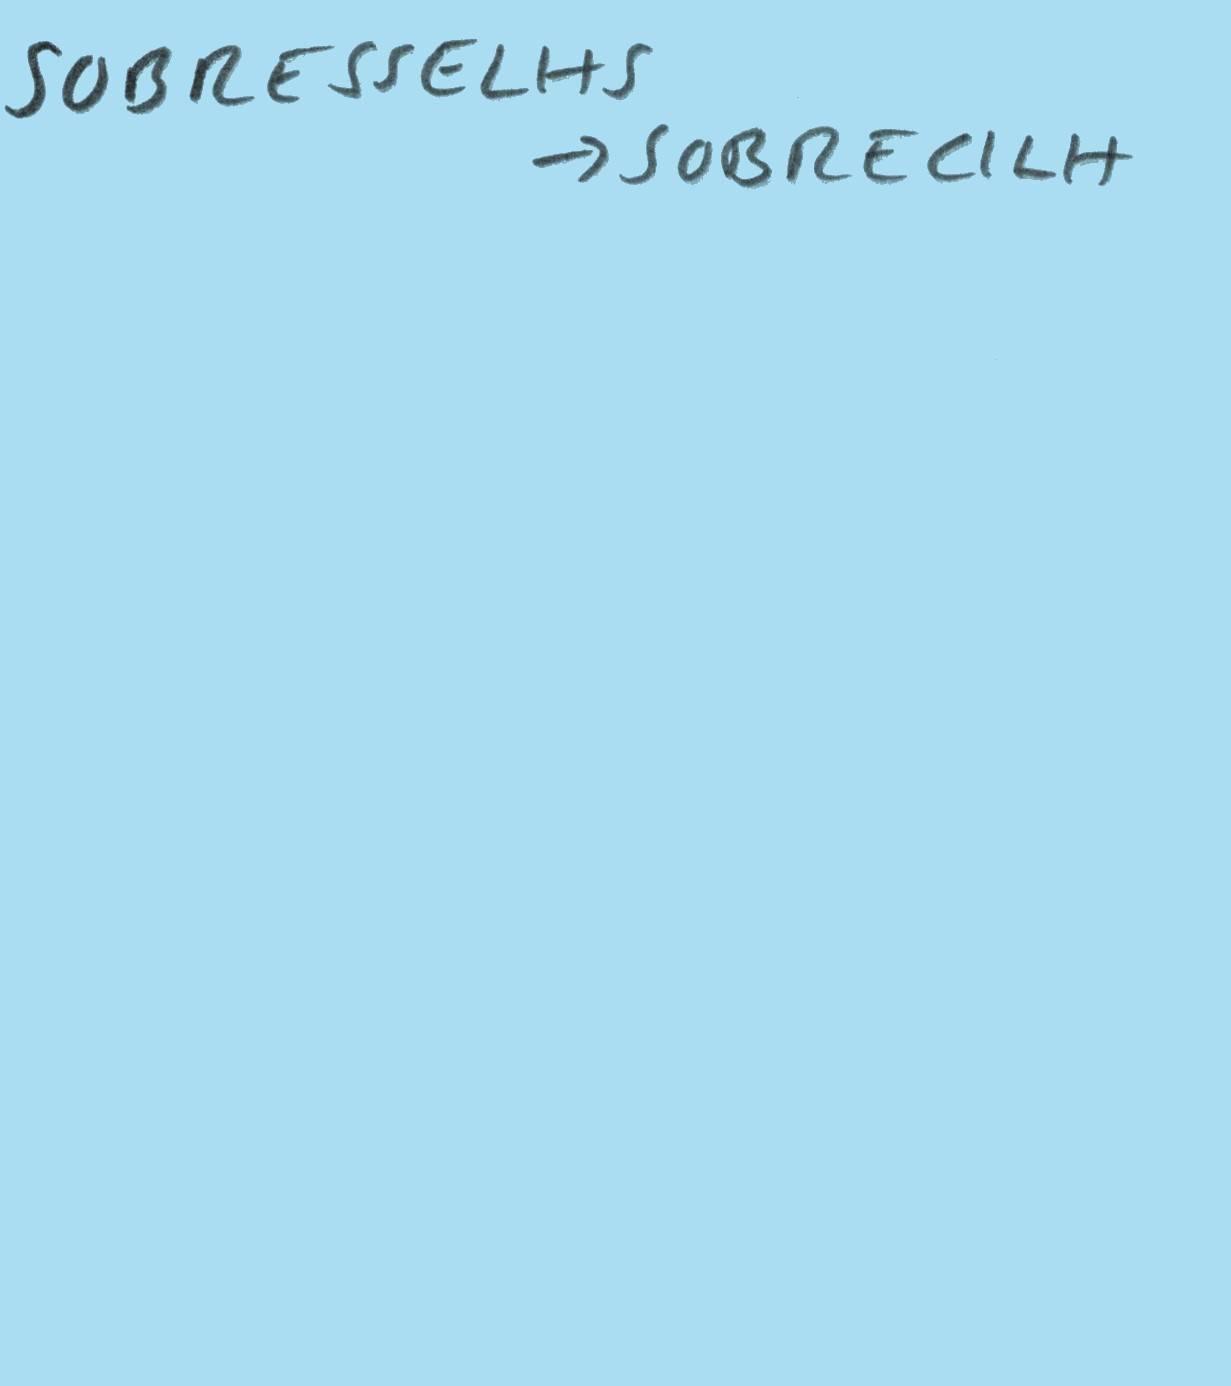 SOBRESSELHS
→SOBRECILH